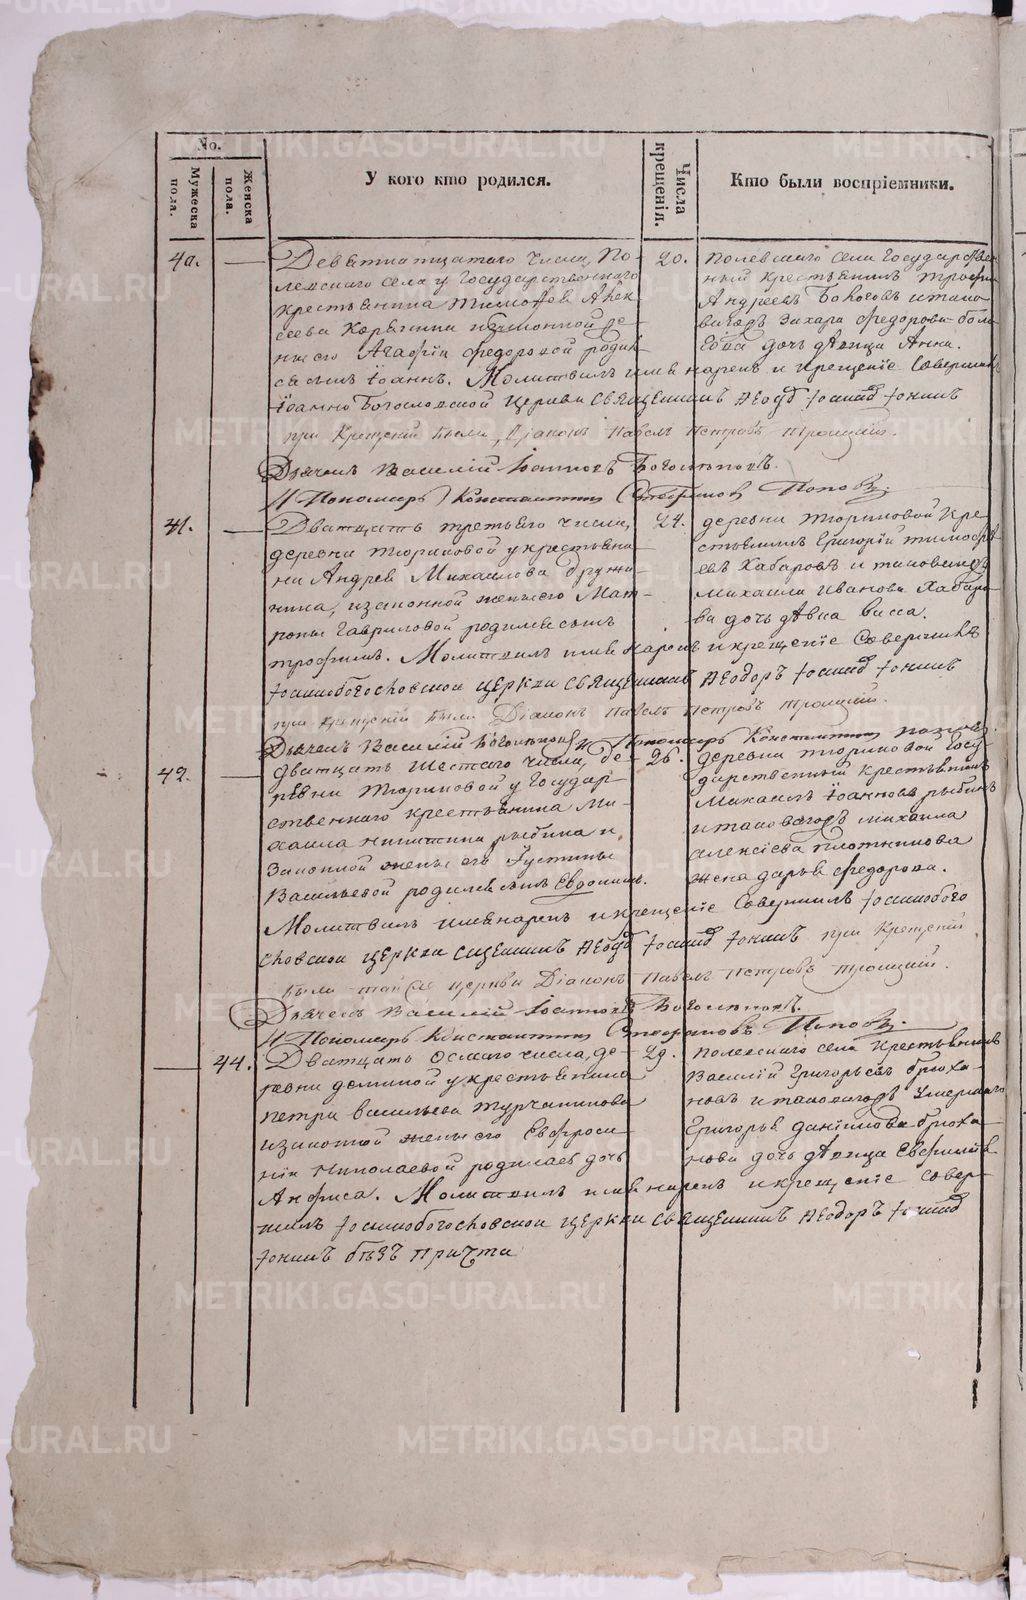 No.
Мужеска пола.
Женска пола.
У кого кто родился.
Числа крещенія.
Кто были воспріемники.
40.
Девятнатцатаго числа, По-
левскаго села у Государственнаго
крестьянина Тимофея Алек-
сеева законной же-
ны его Агафіи Федоровой родил-
ся сынъ Іоаннъ. Молитвилъ имя нарекъ и крещеніе Совершилъ
Іоанно Богословской церкви Священникъ Іоаннъ
при Крещеніи были, Діаконъ Павелъ Петровъ Троицкій.
Дьячекъ Василій Іоанновъ Боголѣповъ.
И Пономарь Константинъ Стефановъ Поповъ.
20.
Полевскаго села Государствен-
ный крестьянинъ
Андреевъ и тако-
вагожъ Захара Федорова
дочь дѣвица Анна.
41.
Дватцать третьяго числа,
деревни Тюриковой у крестьяни-
на Андрея Михаилова Дружи-
нина, и законной жены его Мат-
роны Гавриловой родился сынъ
Трофимъ. Молитвилъ имя нарекъ и крещеніе Совершилъ
Іоаннобогословской церкви Священникъ Ѳеодоръ Іоаннъ
при крещеніи были Діаконъ Павелъ Петровъ Троицкій.
Дьячекъ Василій Боголѣповъ И Пономарь Константинъ Поповъ.
24.
деревни Тюриковой Кре-
стьянинъ Григорій Тимофѣ-
евъ Хабаровъ и таковагожъ
Михаила Иванова Хабаро-
ва дочь дѣвка Васса.
42.
Дватцать шестаго числа, де-
ревни Тюриковой у Государ-
ственнаго крестьянина Ми-
хаила Никитина Рыбина и
законной жены его Іустины
Васильевой родился сынъ Евдокимъ.
Молитвилъ имя нарекъ и крещеніе Совершилъ Іоаннобого
словской церкви Священникъ Іоаннъ при Крещеніи
были тойже церкви Діаконъ Павелъ Петровъ Троицкій.
Дьячекъ Василій Іоанновъ Боголѣповъ.
И Пономарь Константинъ Стефановъ Поповъ.
26.
деревни Тюриковой Госу-
дарственный крестьянинъ
Михаилъ Іоанновъ Рыбинъ
и таковагожъ Михаила
Алексіева Плотникова
жена Дарья Федорова.
44.
Дватцать осмаго числа, де-
ревни Деминой у крестьянина
Петра Васильева Турчанинова
и законной жены его Евфроси-
ніи Николаевой родилась дочь
Анфиса. Молитвилъ имя нарекъ и крещеніе Совер-
шилъ Іоаннобогословской церкви Священникъ Ѳеодоръ Іоаннъ
безъ причта
29.
Полевскаго села Крестьянинъ
Василій Григорьевъ Брюха-
новъ и таковагожъ умершаго
Григорья Даніилова Брюха-
нова дочь дѣвица Евфимія
METRIKI.GASO-URAL.RU